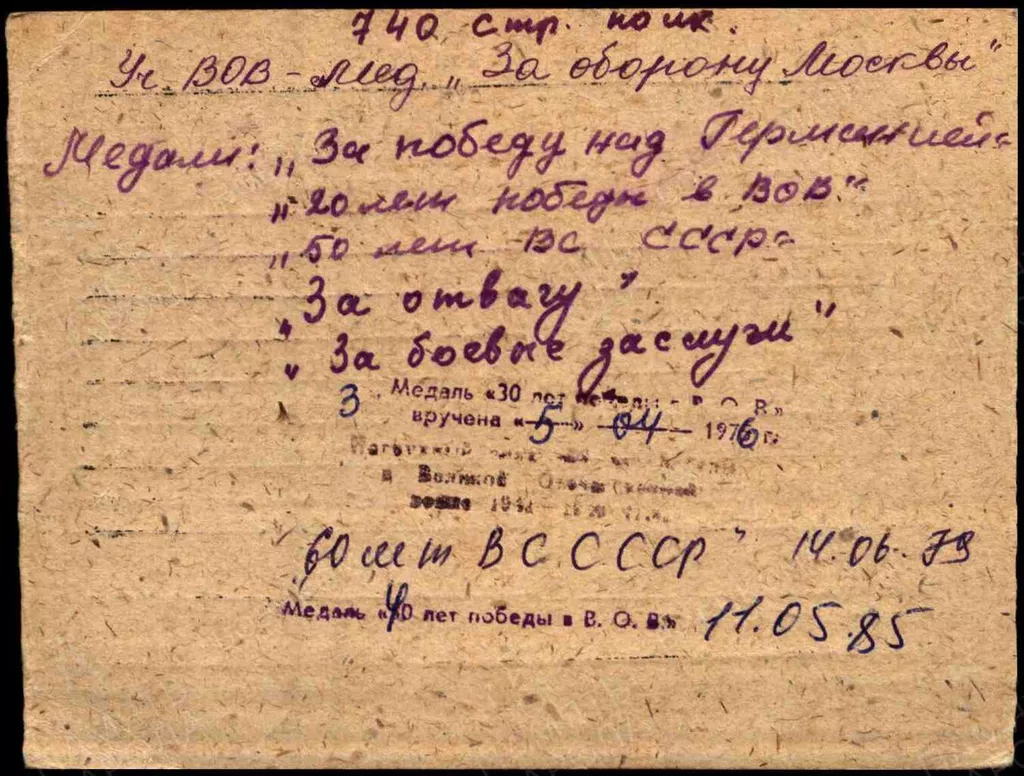 740 стр. полк.
Уч ВОВ - мед. „За оборону Москвы"
Медали: „За победу над Германией"
„20 лет победы в ВОВ."
„50 лет ВС СССР"
„За отвагу"
„За боевые заслуги"
3 Медаль «30 лет победы в В. О. В»
вручена «5» 04 1976 г.
в Великой Отечественной
войне 1941
60 лет ВС СССР" 14.06.79
Медаль «40 лет победы в В. О. В.» 11.05.85